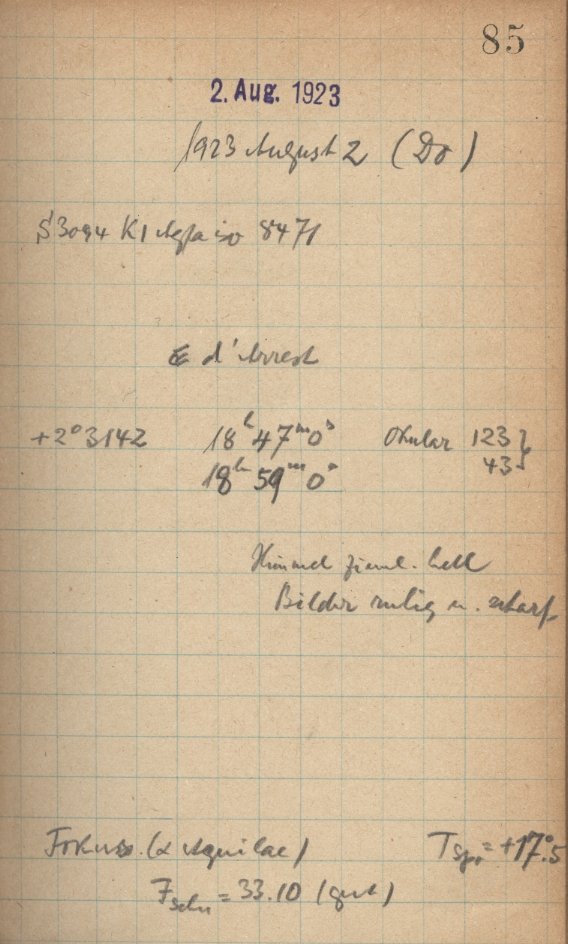 85
2. Aug. 1923
1923 August 2 (Do)
S3094 K1 Agfa iso 8471
d'Arrest
+2°3142 18h 47m 0s Okular 123}
18h 59m 0s 43}
Himmel zieml. hell
Bilder ruhig u. scharf
Fokus. (α Aquilae)
Tspr = +17°.5
Fschn = 33.10 (gut)